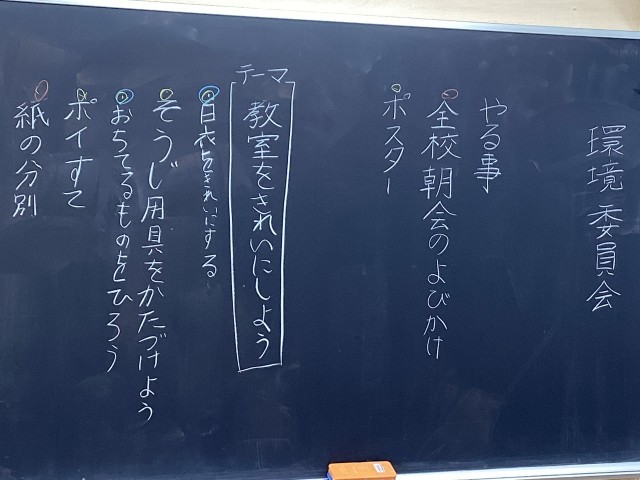 環境委員会
やる事
全校朝会のよびかけ
ポスター
テーマ
教室をきれいにしよう
白衣をきれいにする
そうじ用具をかたづけよう
おちてるものをひろう
ポイすて
紙の分別